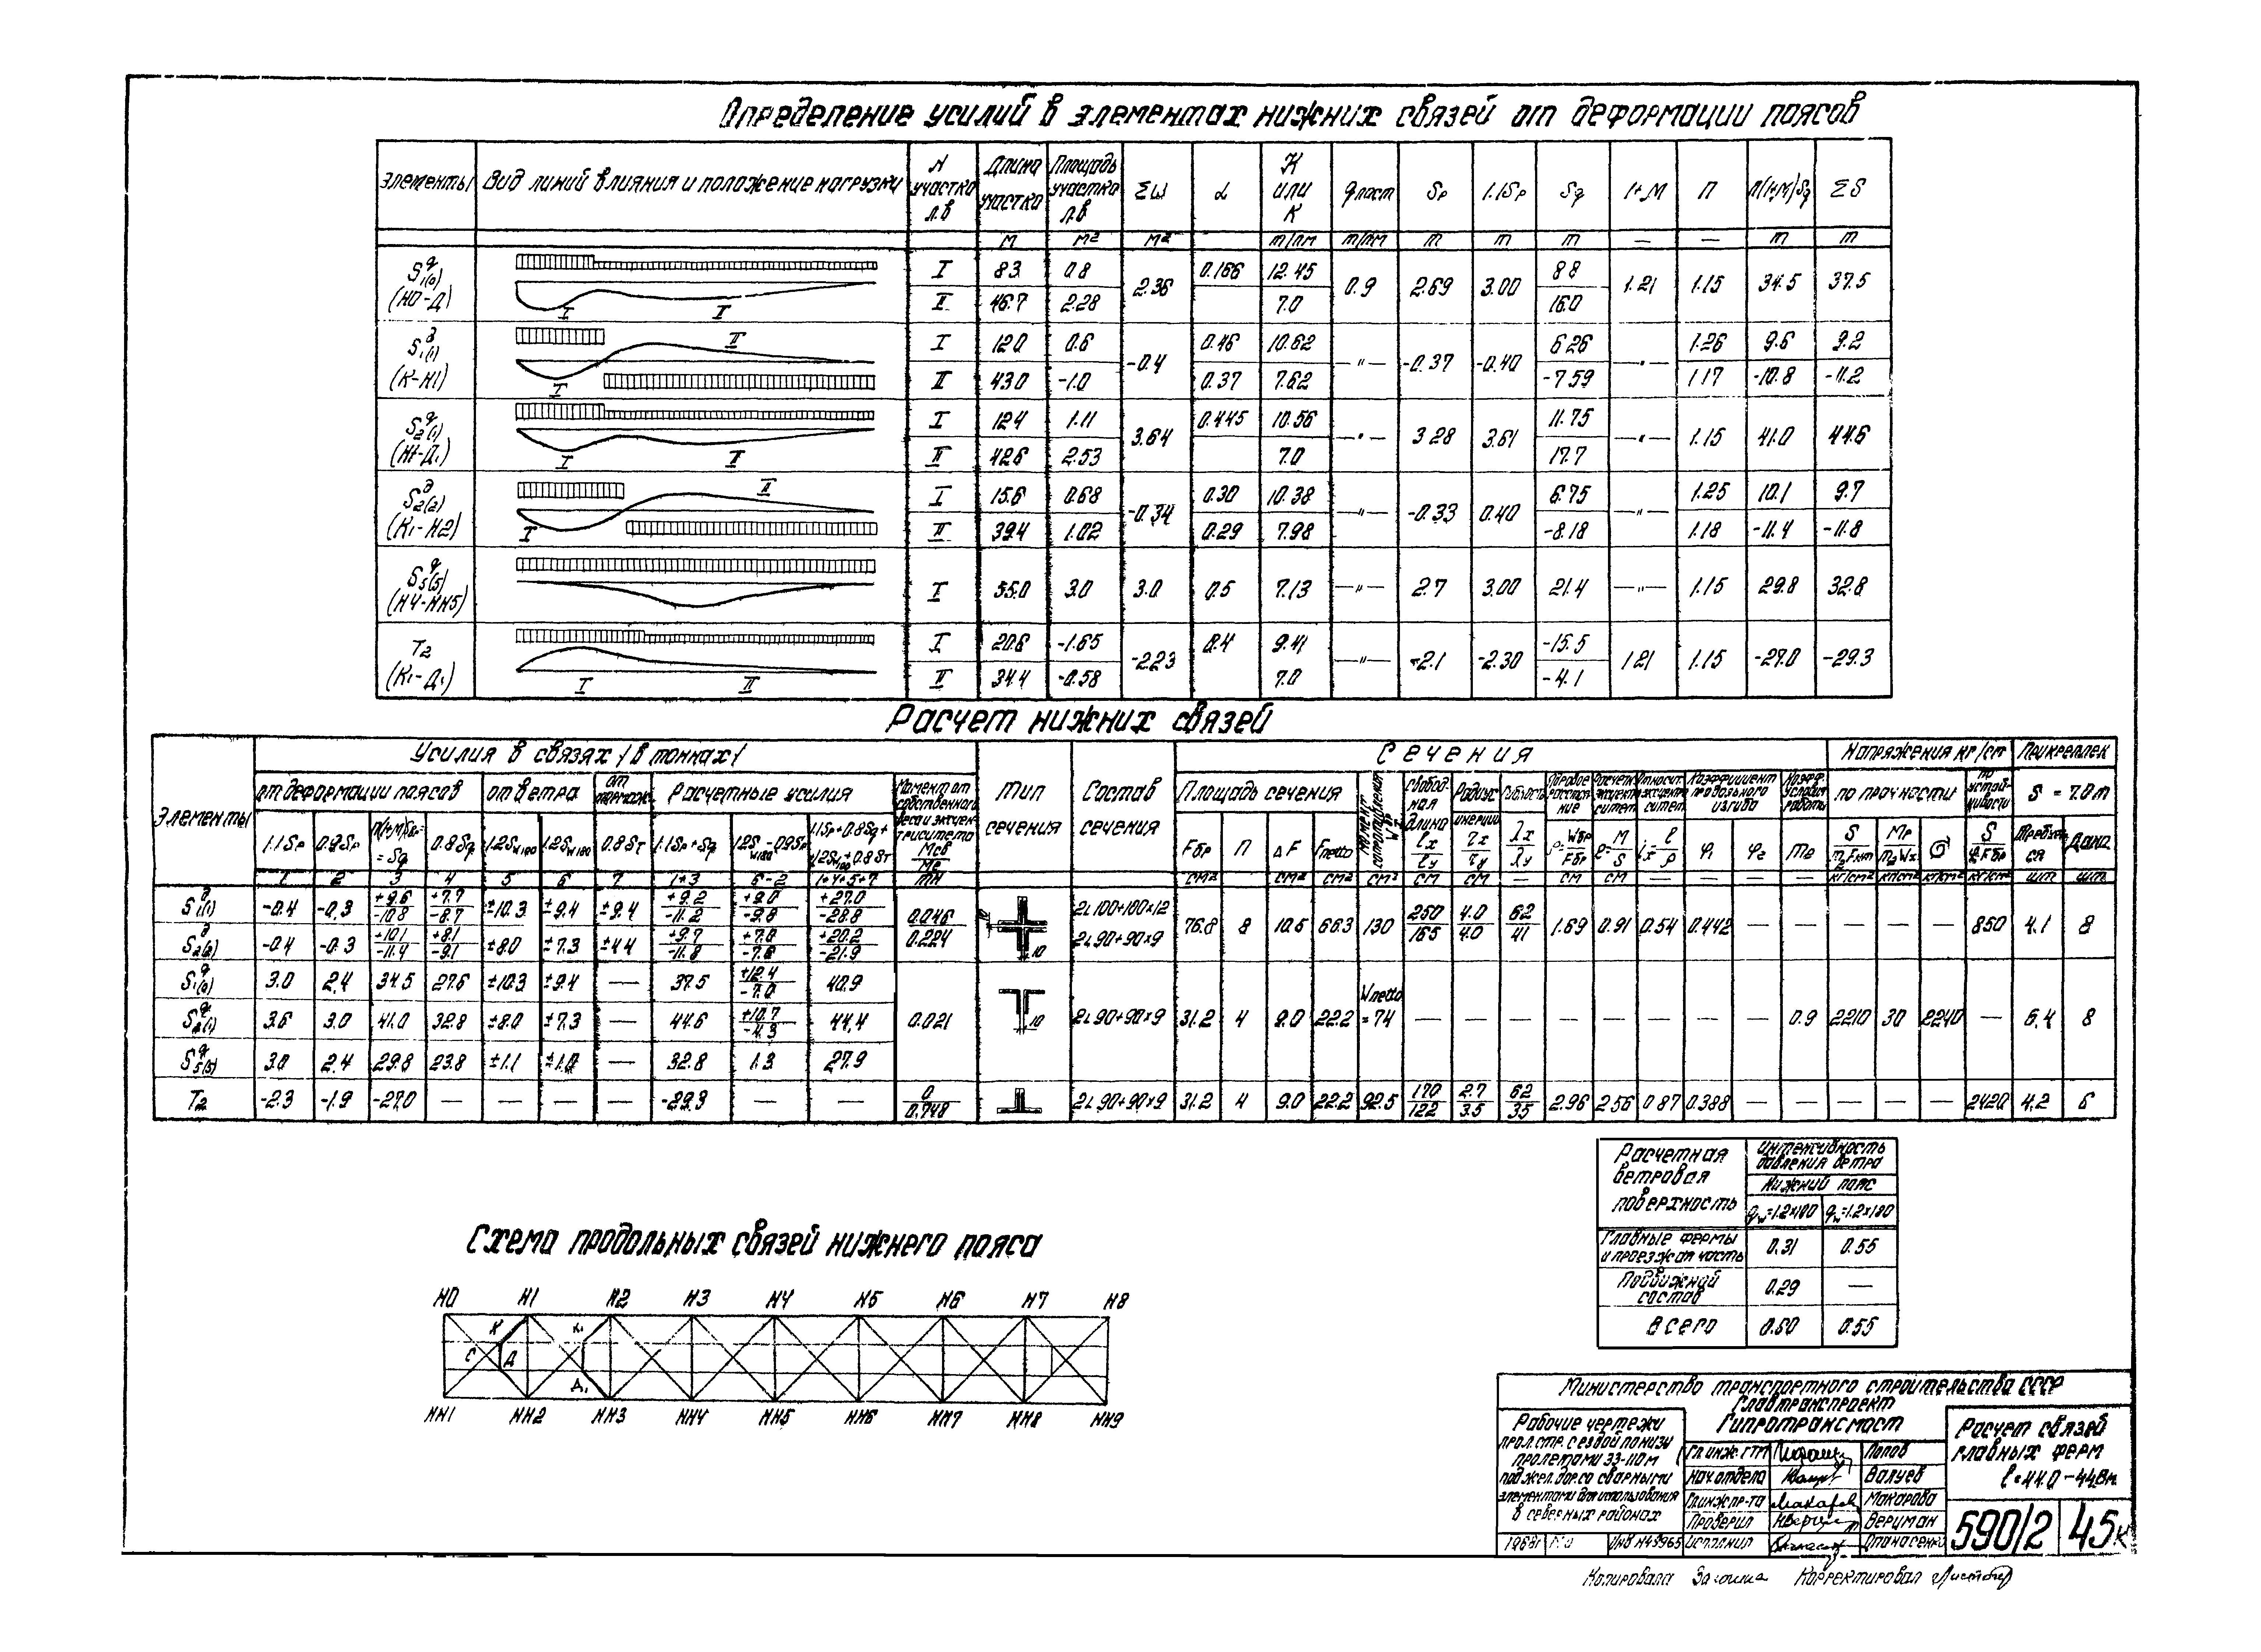 Определение усилий в элементах нижних связей от деформации поясов
Элементы Вид линий влияния и положение нагрузки N участка л.в Длина участка Площадь участка л.в Σω α К или К qпаст Sp 1.1Sp Sq 1+M П П(1+M)Sq ΣS
м м² м² т/пм т/пм т т т — — т т
S₁(₀)^q (Н0-Д) I 8.3 0.8 2.36 0.166 12.45 0.9 2.69 3.00 8.8 1.21 1.15 34.5 37.5
II 46.7 2.28 7.0 16.0
S₁(₁)^д (К-Н1) I 12.0 0.6 -0.4 0.46 10.62 —"— -0.37 -0.40 6.26 —"— 1.26 9.6 9.2
II 43.0 -1.0 0.37 7.62 -7.59 1.17 -10.8 -11.2
S₂(₁)^q (Н1-Д₁) I 12.4 1.11 3.64 0.445 10.56 —"— 3.28 3.61 11.75 —"— 1.15 41.0 44.6
II 42.6 2.53 7.0 17.7
S₂(₂)^д (К₁-Н2) I 15.6 0.68 -0.34 0.30 10.38 —"— -0.33 0.40 6.75 —"— 1.25 10.1 9.7
II 39.4 1.02 0.29 7.98 -8.18 1.18 -11.4 -11.8
S₅(₅)^q (Н4-НН5) I 55.0 3.0 3.0 0.5 7.13 —"— 2.7 3.00 21.4 —"— 1.15 29.8 32.8
T₂ (К₁-Д₁) I 20.6 -1.65 -2.23 0.4 9.41 —"— -2.1 -2.30 -15.5 1.21 1.15 -27.0 -29.3
II 34.4 -0.58 7.0 -4.1
Расчет нижних связей
Элементы Усилия в связях /в тоннах/ Тип сечения Состав сечения Сечения Напряжения кг/см² Прикреплен
от деформации поясов от ветра от тормож. Расчетные усилия Момент от собственного веса и эксцентриситета Площадь сечения Момент сопротивления Свободная длина Радиус инерции Гибкость Коэффициент продольного изгиба Коэфф. условия работы по прочности по устойчивости S = 7.0т
1.1Sp 0.9Sp П(1+M)Sq = Sq 0.8Sq 1.2Sw100 1.2Sw180 0.8Sт 1.1Sp+Sq 1.2Sw180-0.9Sp 1.1Sp+0.8Sq+1.2Sw100+0.8Sт Mсв/Mе Fбр П ΔF Fnetto lx/ly rx/ry λx/λy ρ=Wбр/Fбр e=M/S i=e/ρ φ₁ φ₂ m₂ S/m₂Fнт Mр/m₂Wx σ S/φFбр Требуется Дано
1 2 3 4 5 6 7 1+3 6-2 1+4+5+7 тм см² см² см² см³ см см — см см — кг/см² кг/см² кг/см² кг/см² шт шт
S₁(₁)^д -0.4 -0.3 +9.6/-10.8 +7.7/-8.7 ±10.3 ±9.4 ±9.4 +9.2/-11.2 +9.0/-9.8 +27.0/-28.8 0.046/0.224 10 2∟100+100×12 2∟90+90×9 76.8 8 10.5 66.3 130 260/165 4.0/4.0 62/41 1.69 0.91 0.54 0.442 — — — — — 850 4.1 8
S₂(₂)^д -0.4 -0.3 +10.1/-11.4 +8.1/-9.1 ±8.0 ±7.3 ±4.4 +9.7/-11.8 +7.0/-7.6 +20.2/-21.9
S₁(₀)^q 3.0 2.4 34.5 27.6 ±10.3 ±9.4 — 37.5 +12.4/-7.0 40.9
S₂(₁)^q 3.6 3.0 41.0 32.8 ±8.0 ±7.3 — 44.6 +10.7/-4.3 44.4 0.021 10 2∟90+90×9 31.2 4 9.0 22.2 Wnetto = 74 — — — — — — — — 0.9 2210 30 2240 — 6.4 8
S₅(₅)^q 3.0 2.4 29.8 23.8 ±1.1 ±1.0 — 32.8 1.3 27.9
T₂ -2.3 -1.9 -27.0 — — — — -29.3 — — 0/0.748 2∟90+90×9 31.2 4 9.0 22.2 92.5 170/122 2.7/3.5 62/35 2.96 2.56 0.87 0.388 — — — — — 2420 4.2 6
Расчетная ветровая поверхность Интенсивность давления ветра
Нижний пояс
qw=1.2×100 qw=1.2×180
Главные фермы и проезжая часть 0.31 0.55
Подвижной состав 0.29 —
Всего 0.60 0.55
Схема продольных связей нижнего пояса
Н0 Н1 Н2 Н3 Н4 Н5 Н6 Н7 Н8
К К₁
С Д
Д₁
НН1 НН2 НН3 НН4 НН5 НН6 НН7 НН8 НН9
Министерство транспортного строительства СССР
Главтранспроект
Гипротрансмост
Рабочие чертежи
прол.стр. с ездой понизу
пролетами 33-110м
под жел.дор. со сварными
элементами для использования
в северных районах
Гл.инж.ГТМ Попов
Нач.отдела Валуев
Гл.инж.пр-та Макарова
Проверил Верцман
Исполнил Опанасенко
1968г Инв N43965
Расчет связей
главных ферм
l=44.0-44.8м.
590/2 45к
Копировала Корректировал